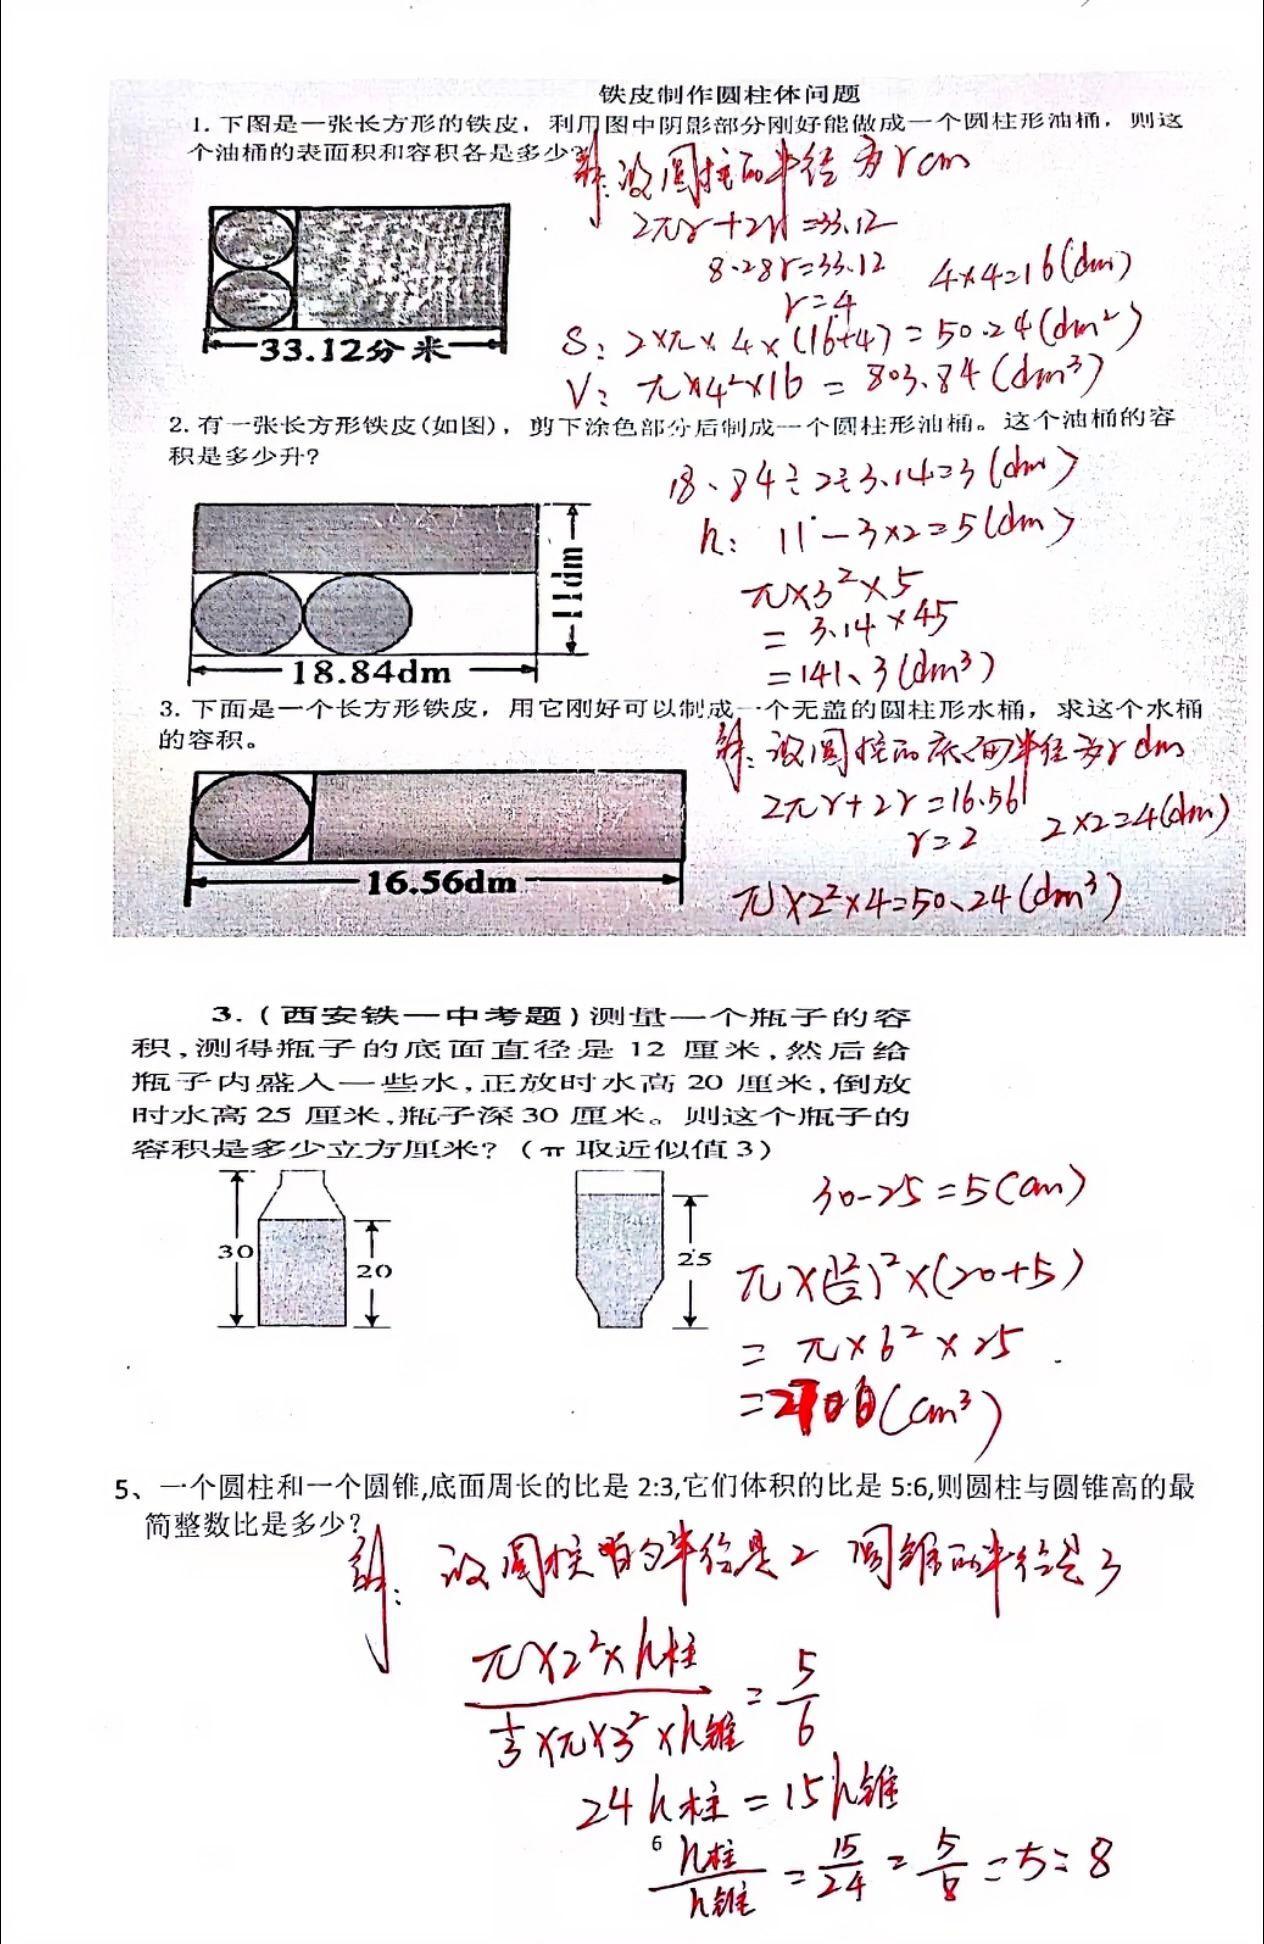 铁皮制作圆柱体问题
1. 下图是一张长方形的铁皮，利用图中阴影部分刚好能做成一个圆柱形油桶，则这
个油桶的表面积和容积各是多少?
解：设圆柱的半径为 r cm
2πr+2r=33.12
8.28r=33.12
r=4
4×4=16(dm)
S：2×π×4×(16+4)=50.24(dm²)
V：π×4²×16=803.84(dm³)
33.12分米
2. 有一张长方形铁皮(如图)，剪下涂色部分后制成一个圆柱形油桶。这个油桶的容
积是多少升?
18.84÷2÷3.14=3(dm)
h：11-3×2=5(dm)
π×3²×5
=3.14×45
=141.3(dm³)
11dm
18.84dm
3. 下面是一个长方形铁皮，用它刚好可以制成一个无盖的圆柱形水桶，求这个水桶
的容积。
解：设圆柱的底面半径为 r dm
2πr+2r=16.56
r=2
2×2=4(dm)
π×2²×4=50.24(dm³)
16.56dm
3.(西安铁一中考题)测量一个瓶子的容
积,测得瓶子的底面直径是 12 厘米,然后给
瓶子内盛入一些水,正放时水高 20 厘米,倒放
时水高 25 厘米,瓶子深 30 厘米。则这个瓶子的
容积是多少立方厘米?(π 取近似值 3)
30
20
25
30-25=5(cm)
π×(12/2)²×(20+5)
=π×6²×25
=2700(cm³)
5、一个圆柱和一个圆锥,底面周长的比是 2:3,它们体积的比是 5:6,则圆柱与圆锥高的最
简整数比是多少?
解：设圆柱的半径是2 圆锥的半径是3
π×2²×h柱
1/3×π×3²×h锥
=5/6
24h柱=15h锥
6
h柱/h锥=15/24=5/8=5:8